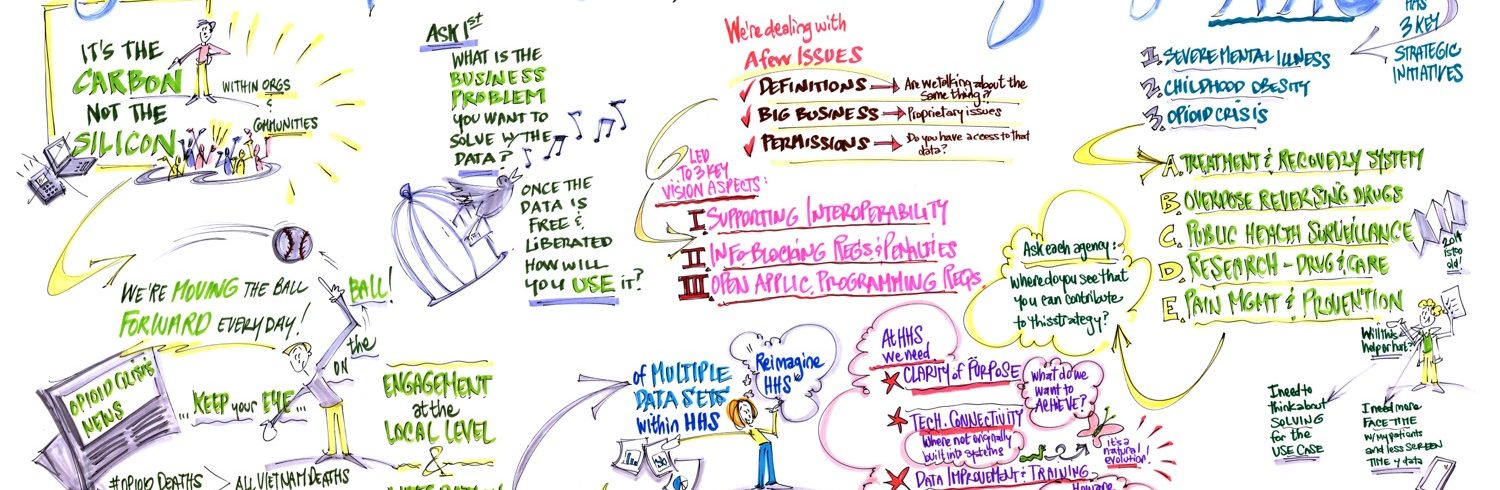 IT'S THE
CARBON
NOT THE
SILICON
WITHIN ORGS
&
COMMUNITIES
WE'RE MOVING THE BALL
FORWARD EVERYDAY!
OPIOID CRISIS
NEWS
...KEEP your EYE...
ON
the
BALL!
#OPIOID DEATHS > ALL VIETNAM DEATHS
ENGAGEMENT
at the
LOCAL LEVEL
&
ASK 1st
WHAT IS THE
BUSINESS
PROBLEM
YOU WANT TO
SOLVE W/THE
DATA?
ONCE THE
DATA IS
FREE &
LIBERATED
HOW WILL
YOU USE IT?
We're dealing with
A few ISSUES
✓ DEFINITIONS → Are we talking about the
same thing?!
✓ BIG BUSINESS → Proprietary issues
✓ PERMISSIONS → Do you have access to that
data?
LED
TO 3 KEY
VISION ASPECTS:
I SUPPORTING INTEROPERABILITY
II INFO BLOCKING REGS & PENALTIES
III OPEN APPLIC. PROGRAMMING REQS.
of MULTIPLE
DATA SETS
within HHS
Reimagine
HHS
At HHS
we need
CLARITY of PURPOSE
What do we
want to
ACHIEVE?
TECH. CONNECTIVITY
Where not originally
built into systems
it's a
natural
evolution!
DATA IMPROVEMENT & TRAINING
How are
Ask each agency:
Where do you see that
you can contribute
to this strategy?
HAS
3 KEY
STRATEGIC
INITIATIVES
1. SEVERE MENTAL ILLNESS
2. CHILDHOOD OBESITY
3. OPIOID CRISIS
A. TREATMENT & RECOVERY SYSTEM
B. OVERDOSE REVERSING DRUGS
C. PUBLIC HEALTH SURVEILLANCE
D. RESEARCH - DRUG & CARE
E. PAIN MGMT & PREVENTION
2014
is too
old!
Will this
help or hurt?
I need to
think about
SOLVING
for the
USE CASE
I need more
FACE TIME
w/my patients
and less SCREEN
TIME & data